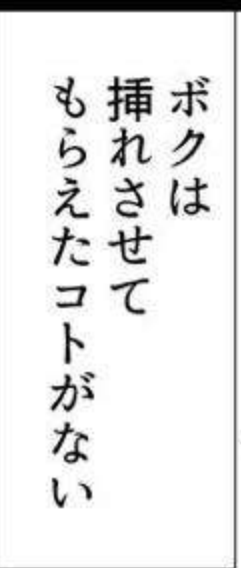 ボクは
挿れさせて
もらえたコトがない